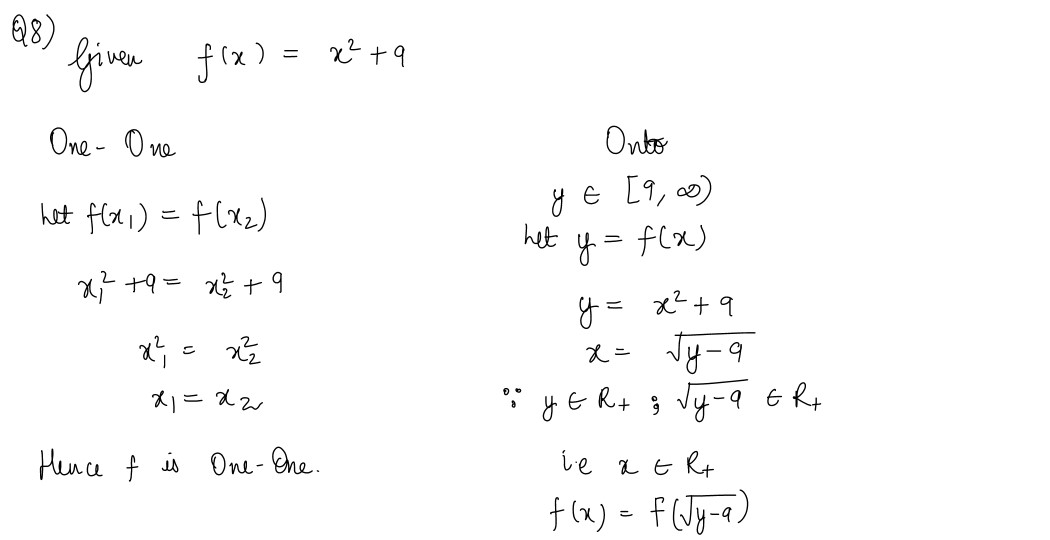 Q8)
Given f(x) = x² + 9
One-One
Let f(x₁) = f(x₂)
x₁² + 9 = x₂² + 9
x₁² = x₂²
x₁ = x₂
Hence f is One-One.
Onto
y ∈ [9, ∞)
Let y = f(x)
y = x² + 9
x = √(y-9)
∵ y ∈ R₊ ; √(y-9) ∈ R₊
i.e x ∈ R₊
f(x) = f(√(y-9))